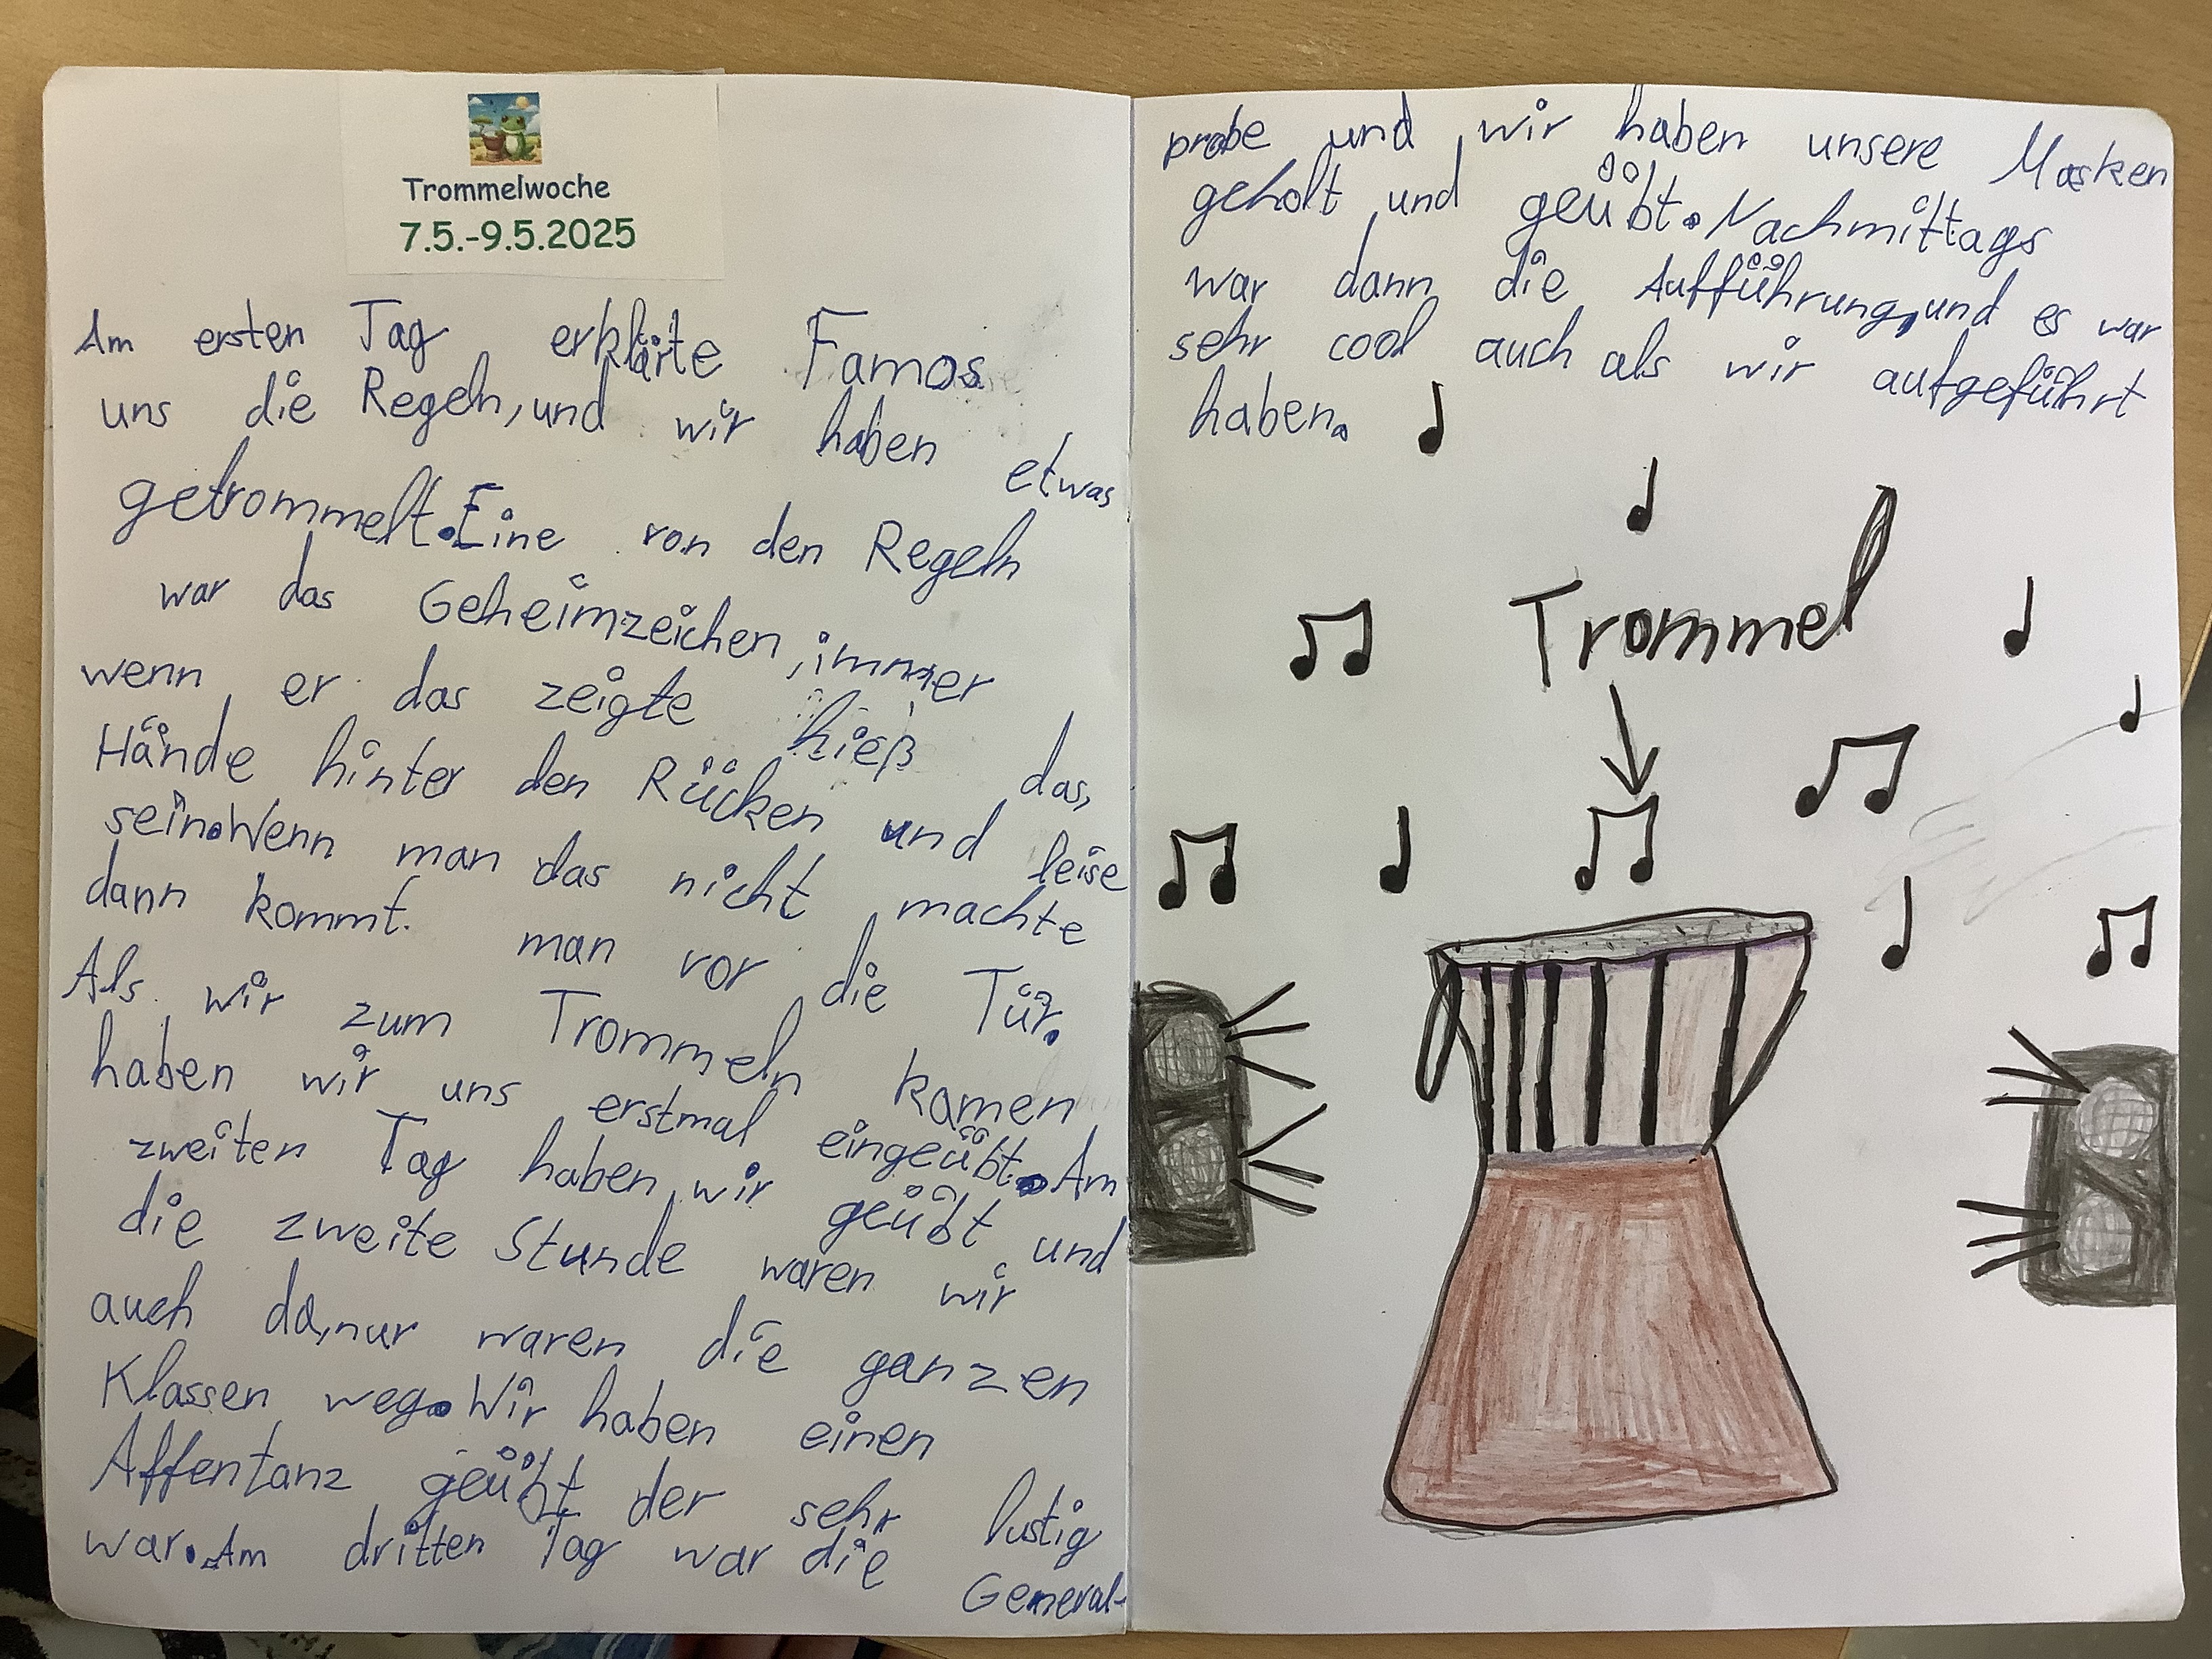 Trommelwoche
7.5.-9.5.2025
Am ersten Tag erklärte Famos
uns die Regeln, und wir haben etwas
getrommelt. Eine von den Regeln
war das Geheimzeichen, immer
wenn er das zeigte hieß das,
Hände hinter den Rücken und leise
sein. Wenn man das nicht machte
dann kommt man vor die Tür.
Als wir zum Trommeln kamen
haben wir uns erstmal eingeübt. Am
zweiten Tag haben wir geübt und
die zweite Stunde waren wir
auch da, nur waren die ganzen
Klassen weg. Wir haben einen
Affentanz geübt der sehr lustig
war. Am dritten Tag war die General-
probe und wir haben unsere Masken
geholt und geübt. Nachmittags
war dann die Aufführung, und es war
sehr cool auch als wir aufgeführt
haben.
Trommel